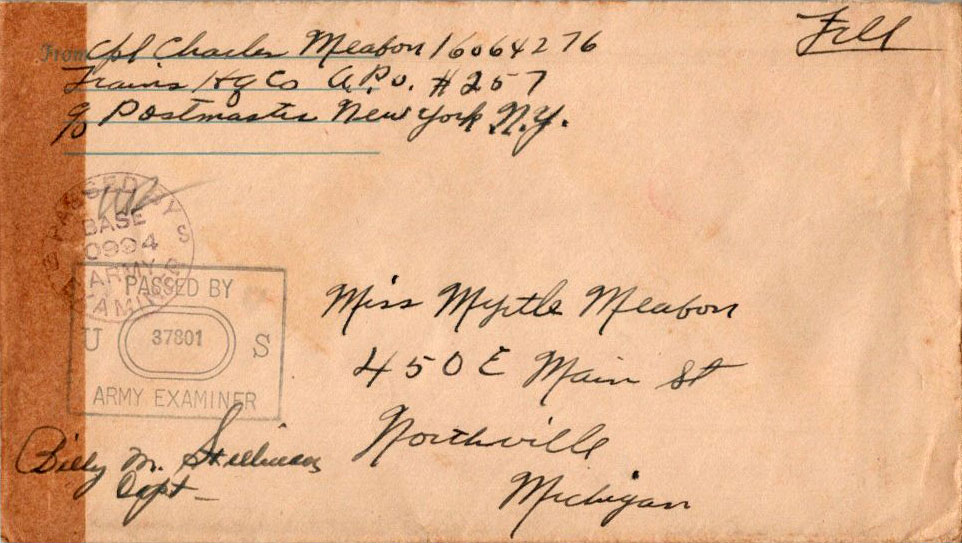 From Cpl Charles Meabon 16064276
Trains Hq Co A.P.O. #257
c/o Postmaster New York N.Y.
Free
PASSED BY
BASE
0994
ARMY
EXAMINER
PASSED BY
U 37801 S
ARMY EXAMINER
Miss Myrtle Meabon
450 E Main St
Northville
Michigan
Billy M.
Capt